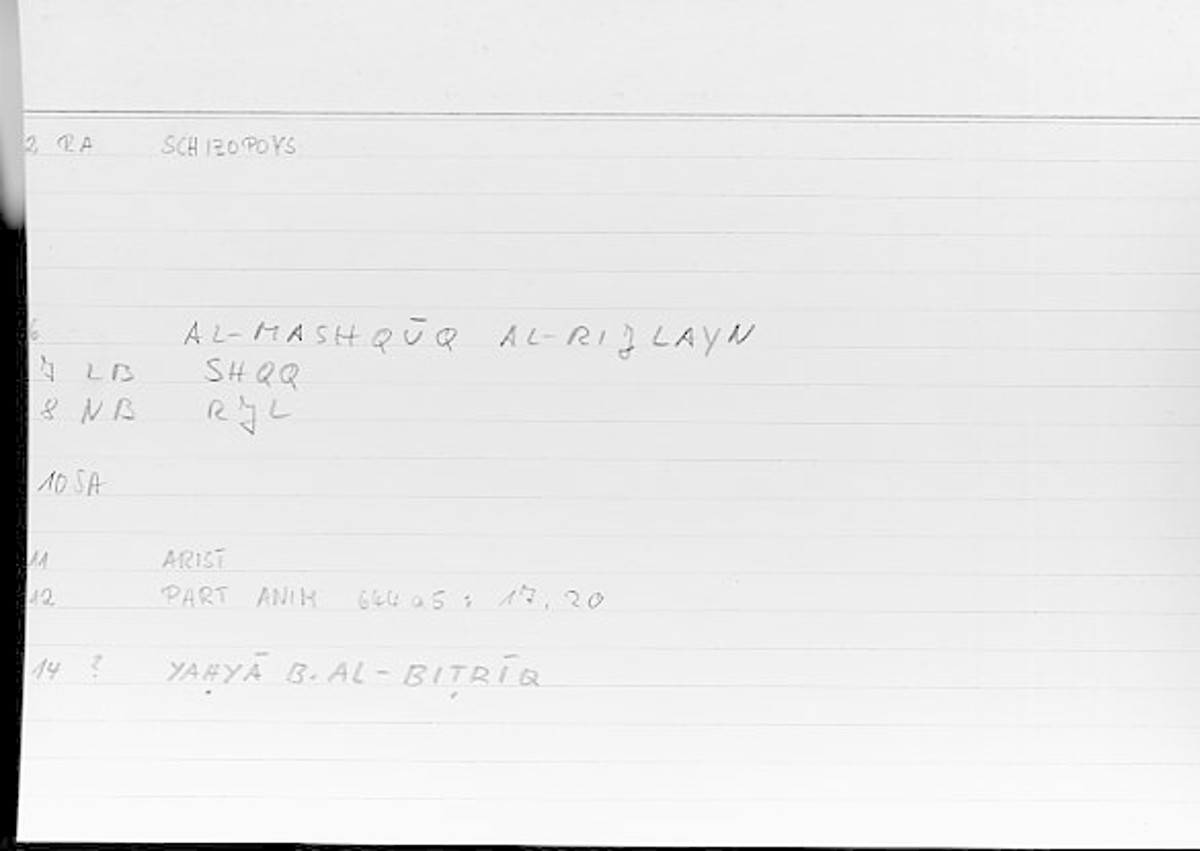 2 RA SCHIZOPOYS
6 AL-MASHQŪQ AL-RIJLAYN
7 LB SHQQ
8 NB RJL
10 SA
11 ARIST
12 PART ANIM 644a5 : 17, 20
14 ? YAḤYĀ B. AL-BIṬRĪQ